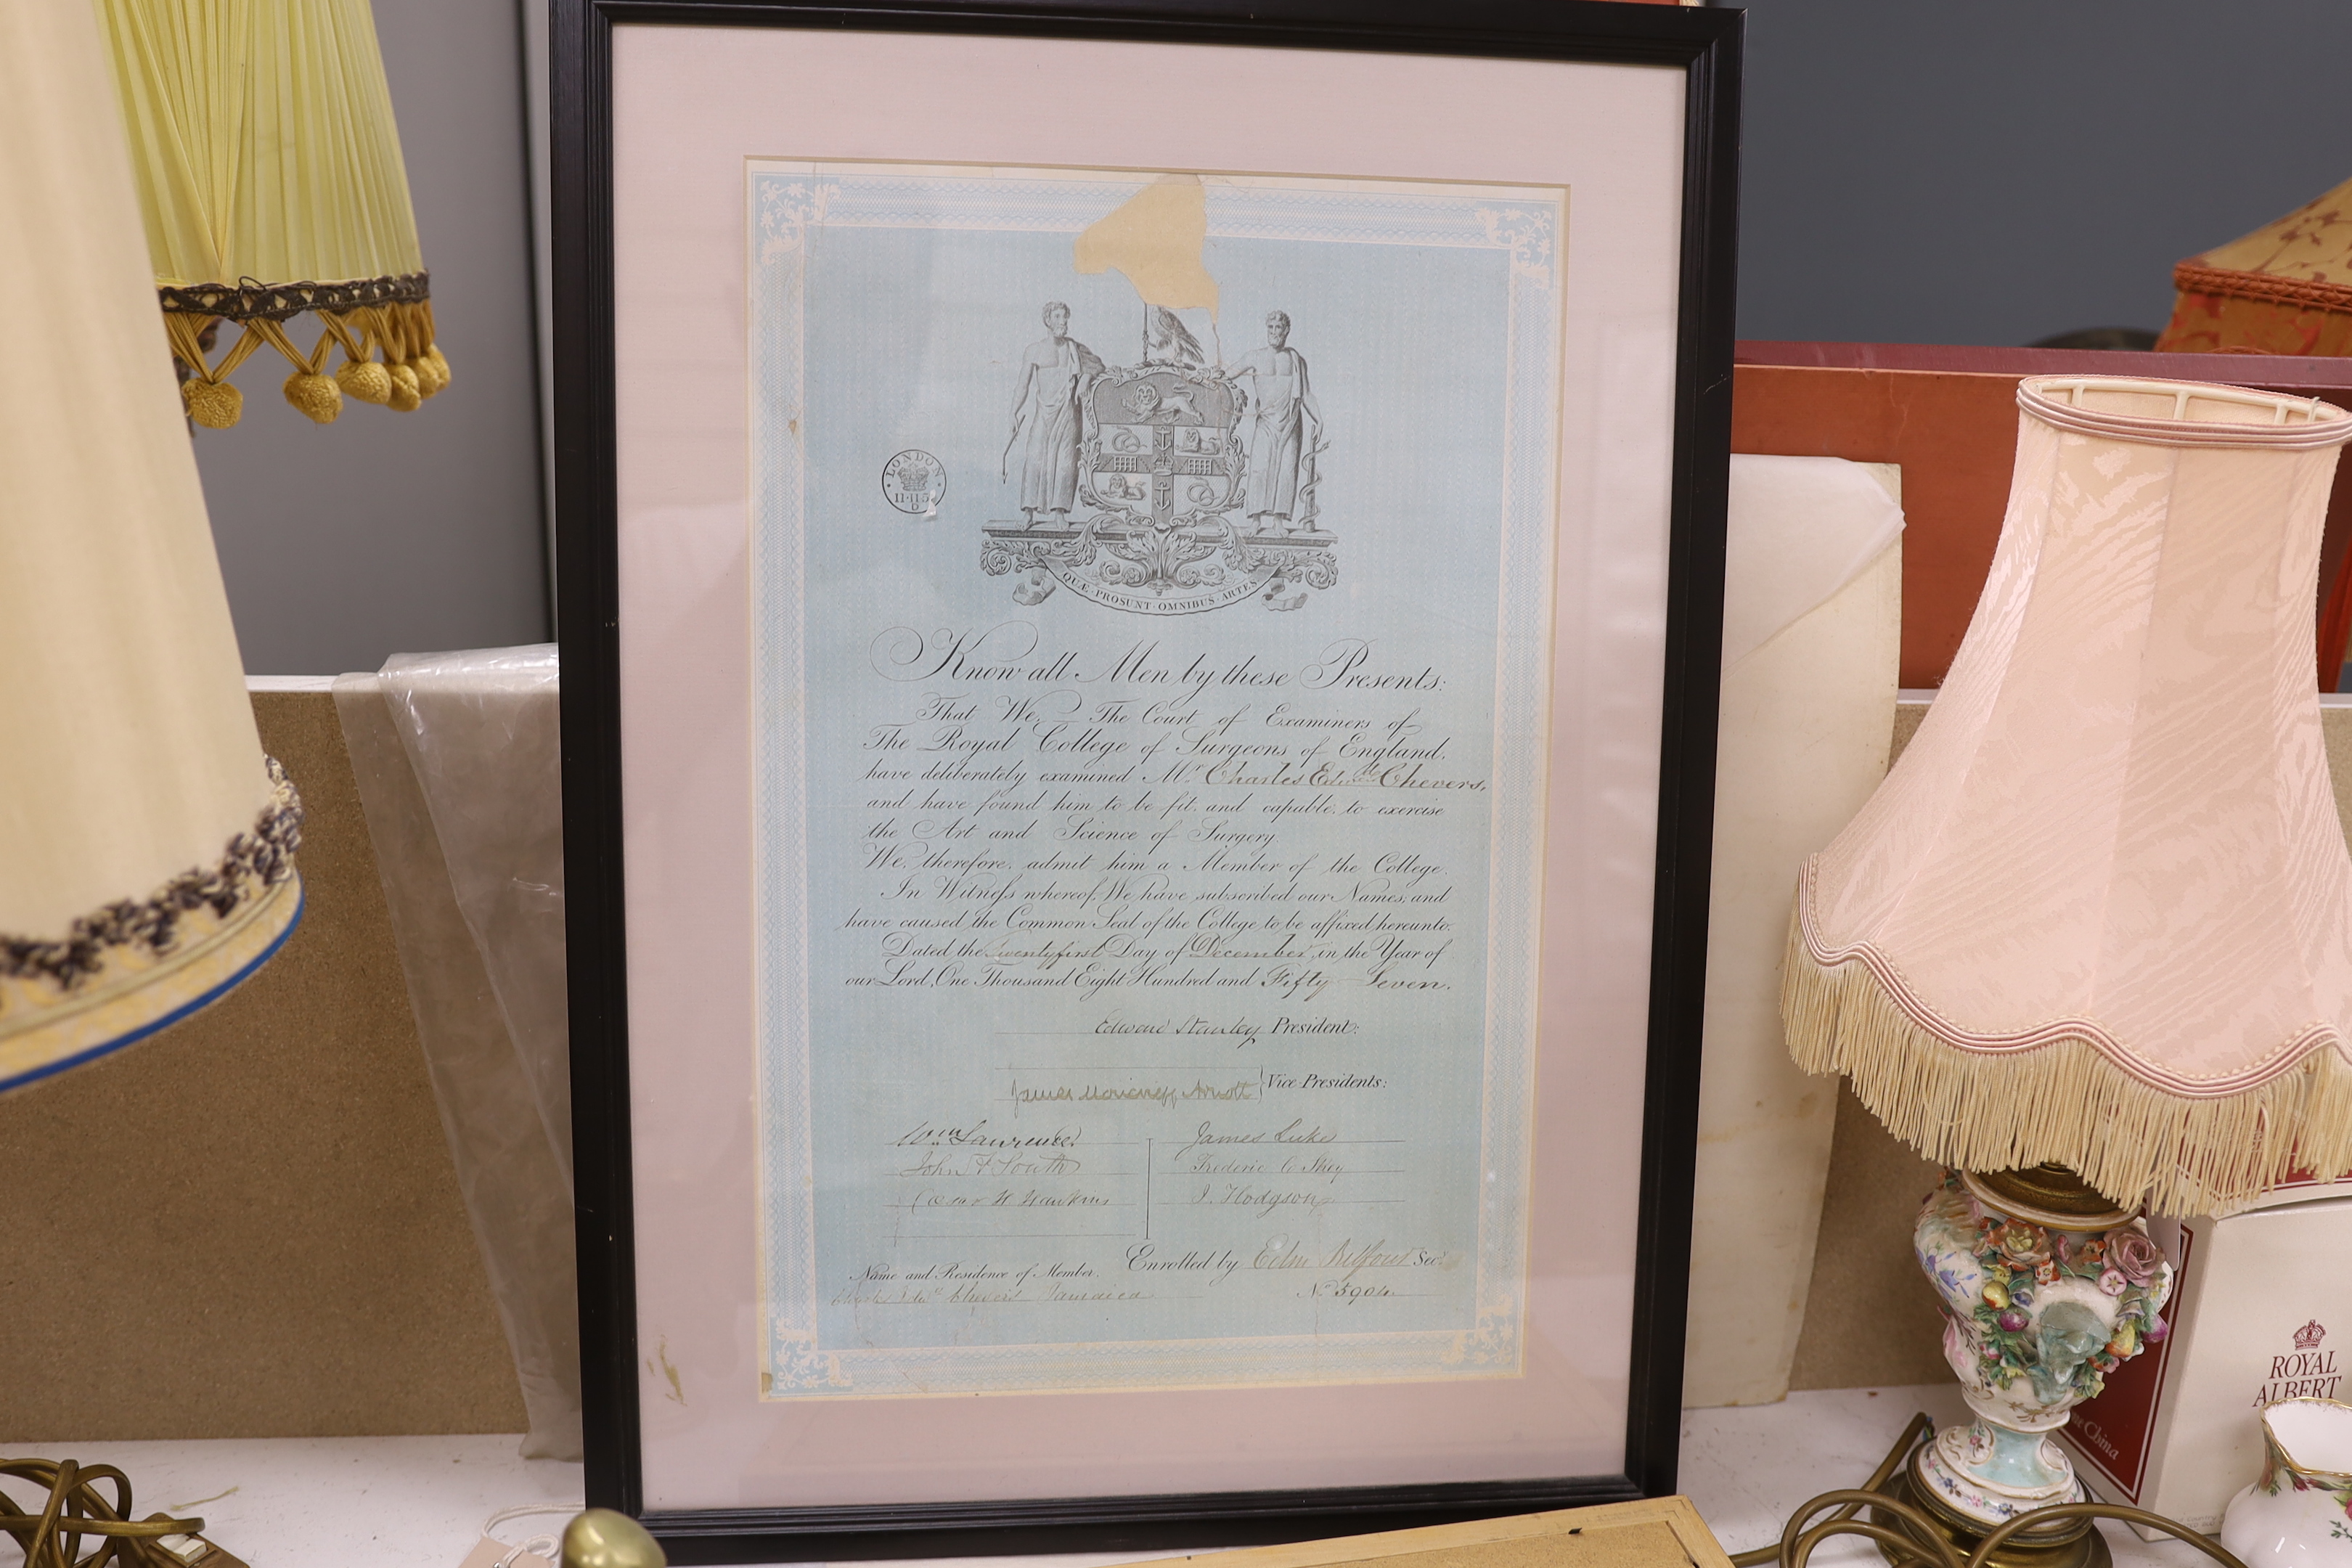 LONDON
11·11·5
D
QUÆ·PROSUNT·OMNIBUS·ARTES
Know all Men by these Presents:
That We, The Court of Examiners of
The Royal College of Surgeons of England,
have deliberately examined Mr Charles Edwd Chevers,
and have found him to be fit and capable to exercise
the Art and Science of Surgery.
We, therefore, admit him a Member of the College.
In Witness whereof, We have subscribed our Names, and
have caused the Common Seal of the College to be affixed hereunto.
Dated the Twentyfirst Day of December, in the Year of
our Lord, One Thousand Eight Hundred and Fifty Seven.
Edward Stanley President:
James Moncrieff Arnott Vice-Presidents:
Wm Lawrence James Luke
John F South Frederic C Skey
Cæsar H Hawkins J. Hodgson
Enrolled by Edm Belfour Secy
Name and Residence of Member.
Charles Edwd Chevers Jamaica No 5904
ROYAL
ALBERT
China